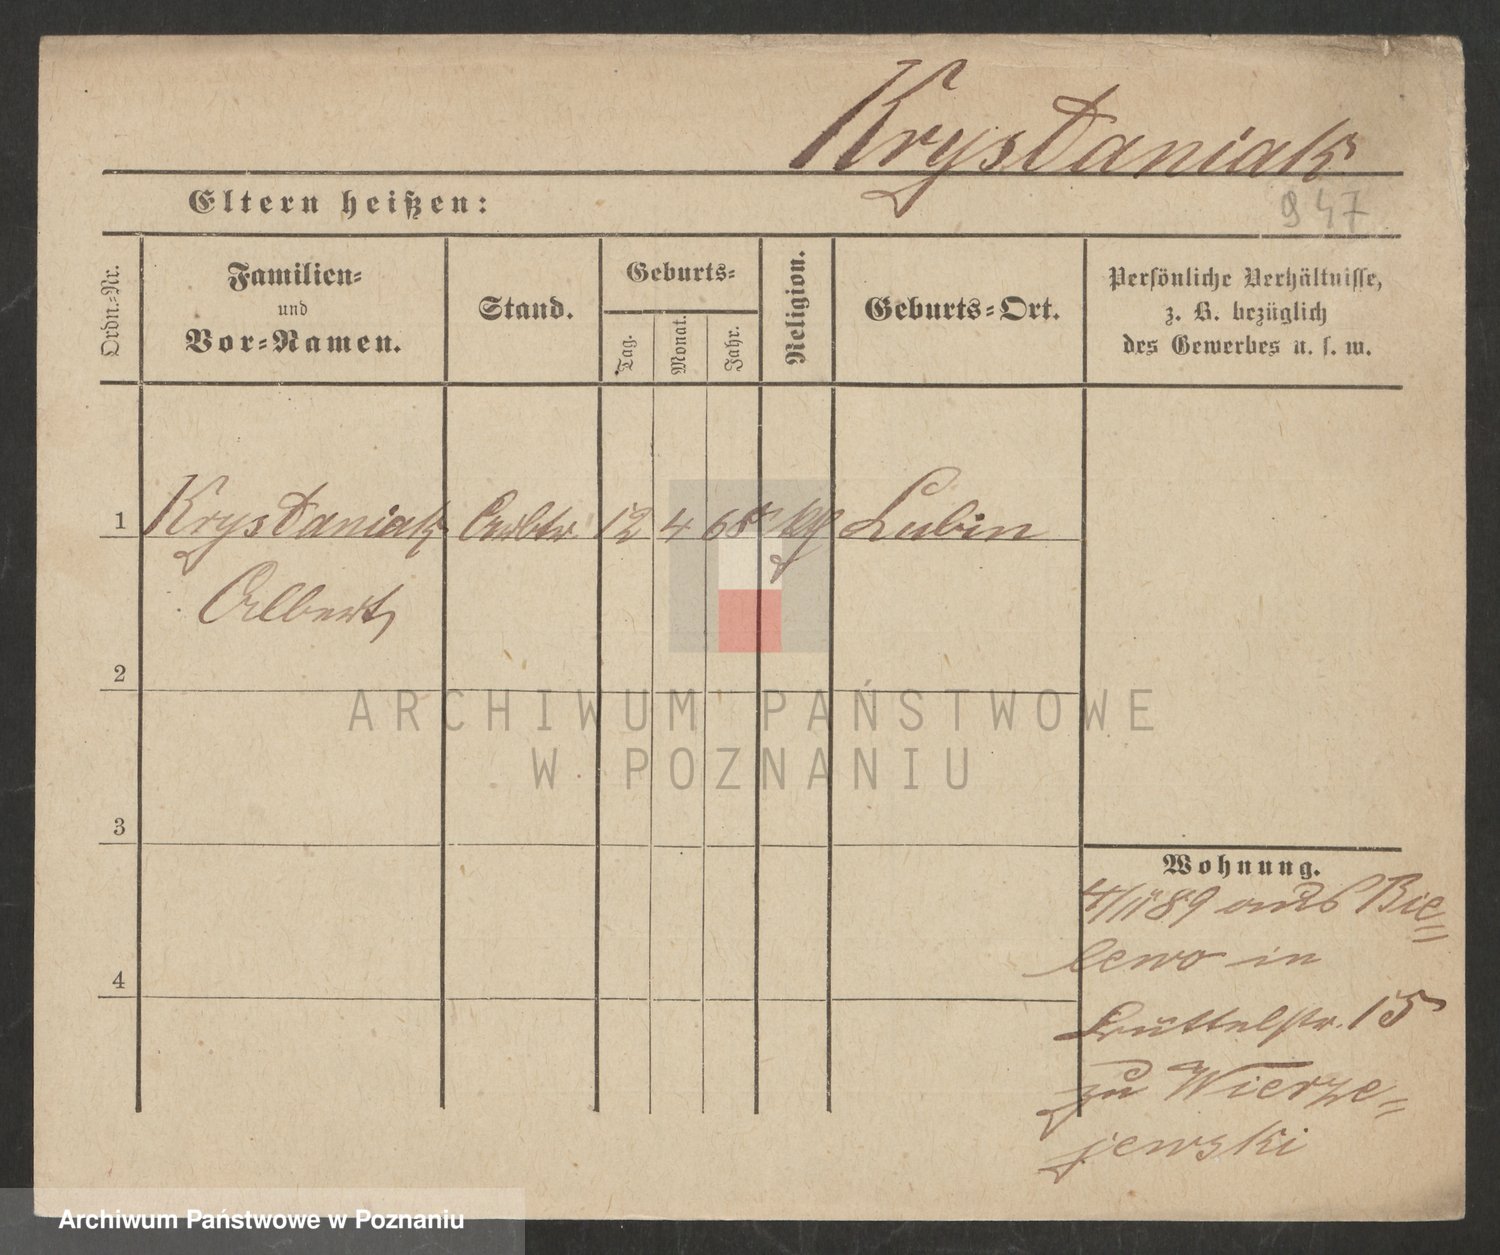 Krysztaniak
947
Eltern heißen:
Ordn.-Nr.
Familien-
und
Vor-Namen.
Stand.
Geburts-
Tag.
Monat.
Jahr.
Religion.
Geburts-Ort.
Persönliche Verhältnisse,
z. B. bezüglich
des Gewerbes u. s. w.
1 Krysztaniak Arbtr. 12 4 68 kth Lubin
Albert
2
3
4
Wohnung.
4/11 89 aus Bie=
lewo in
15
zu Wierze=
jewski
ARCHIWUM PAŃSTWOWE
W POZNANIU
Archiwum Państwowe w Poznaniu